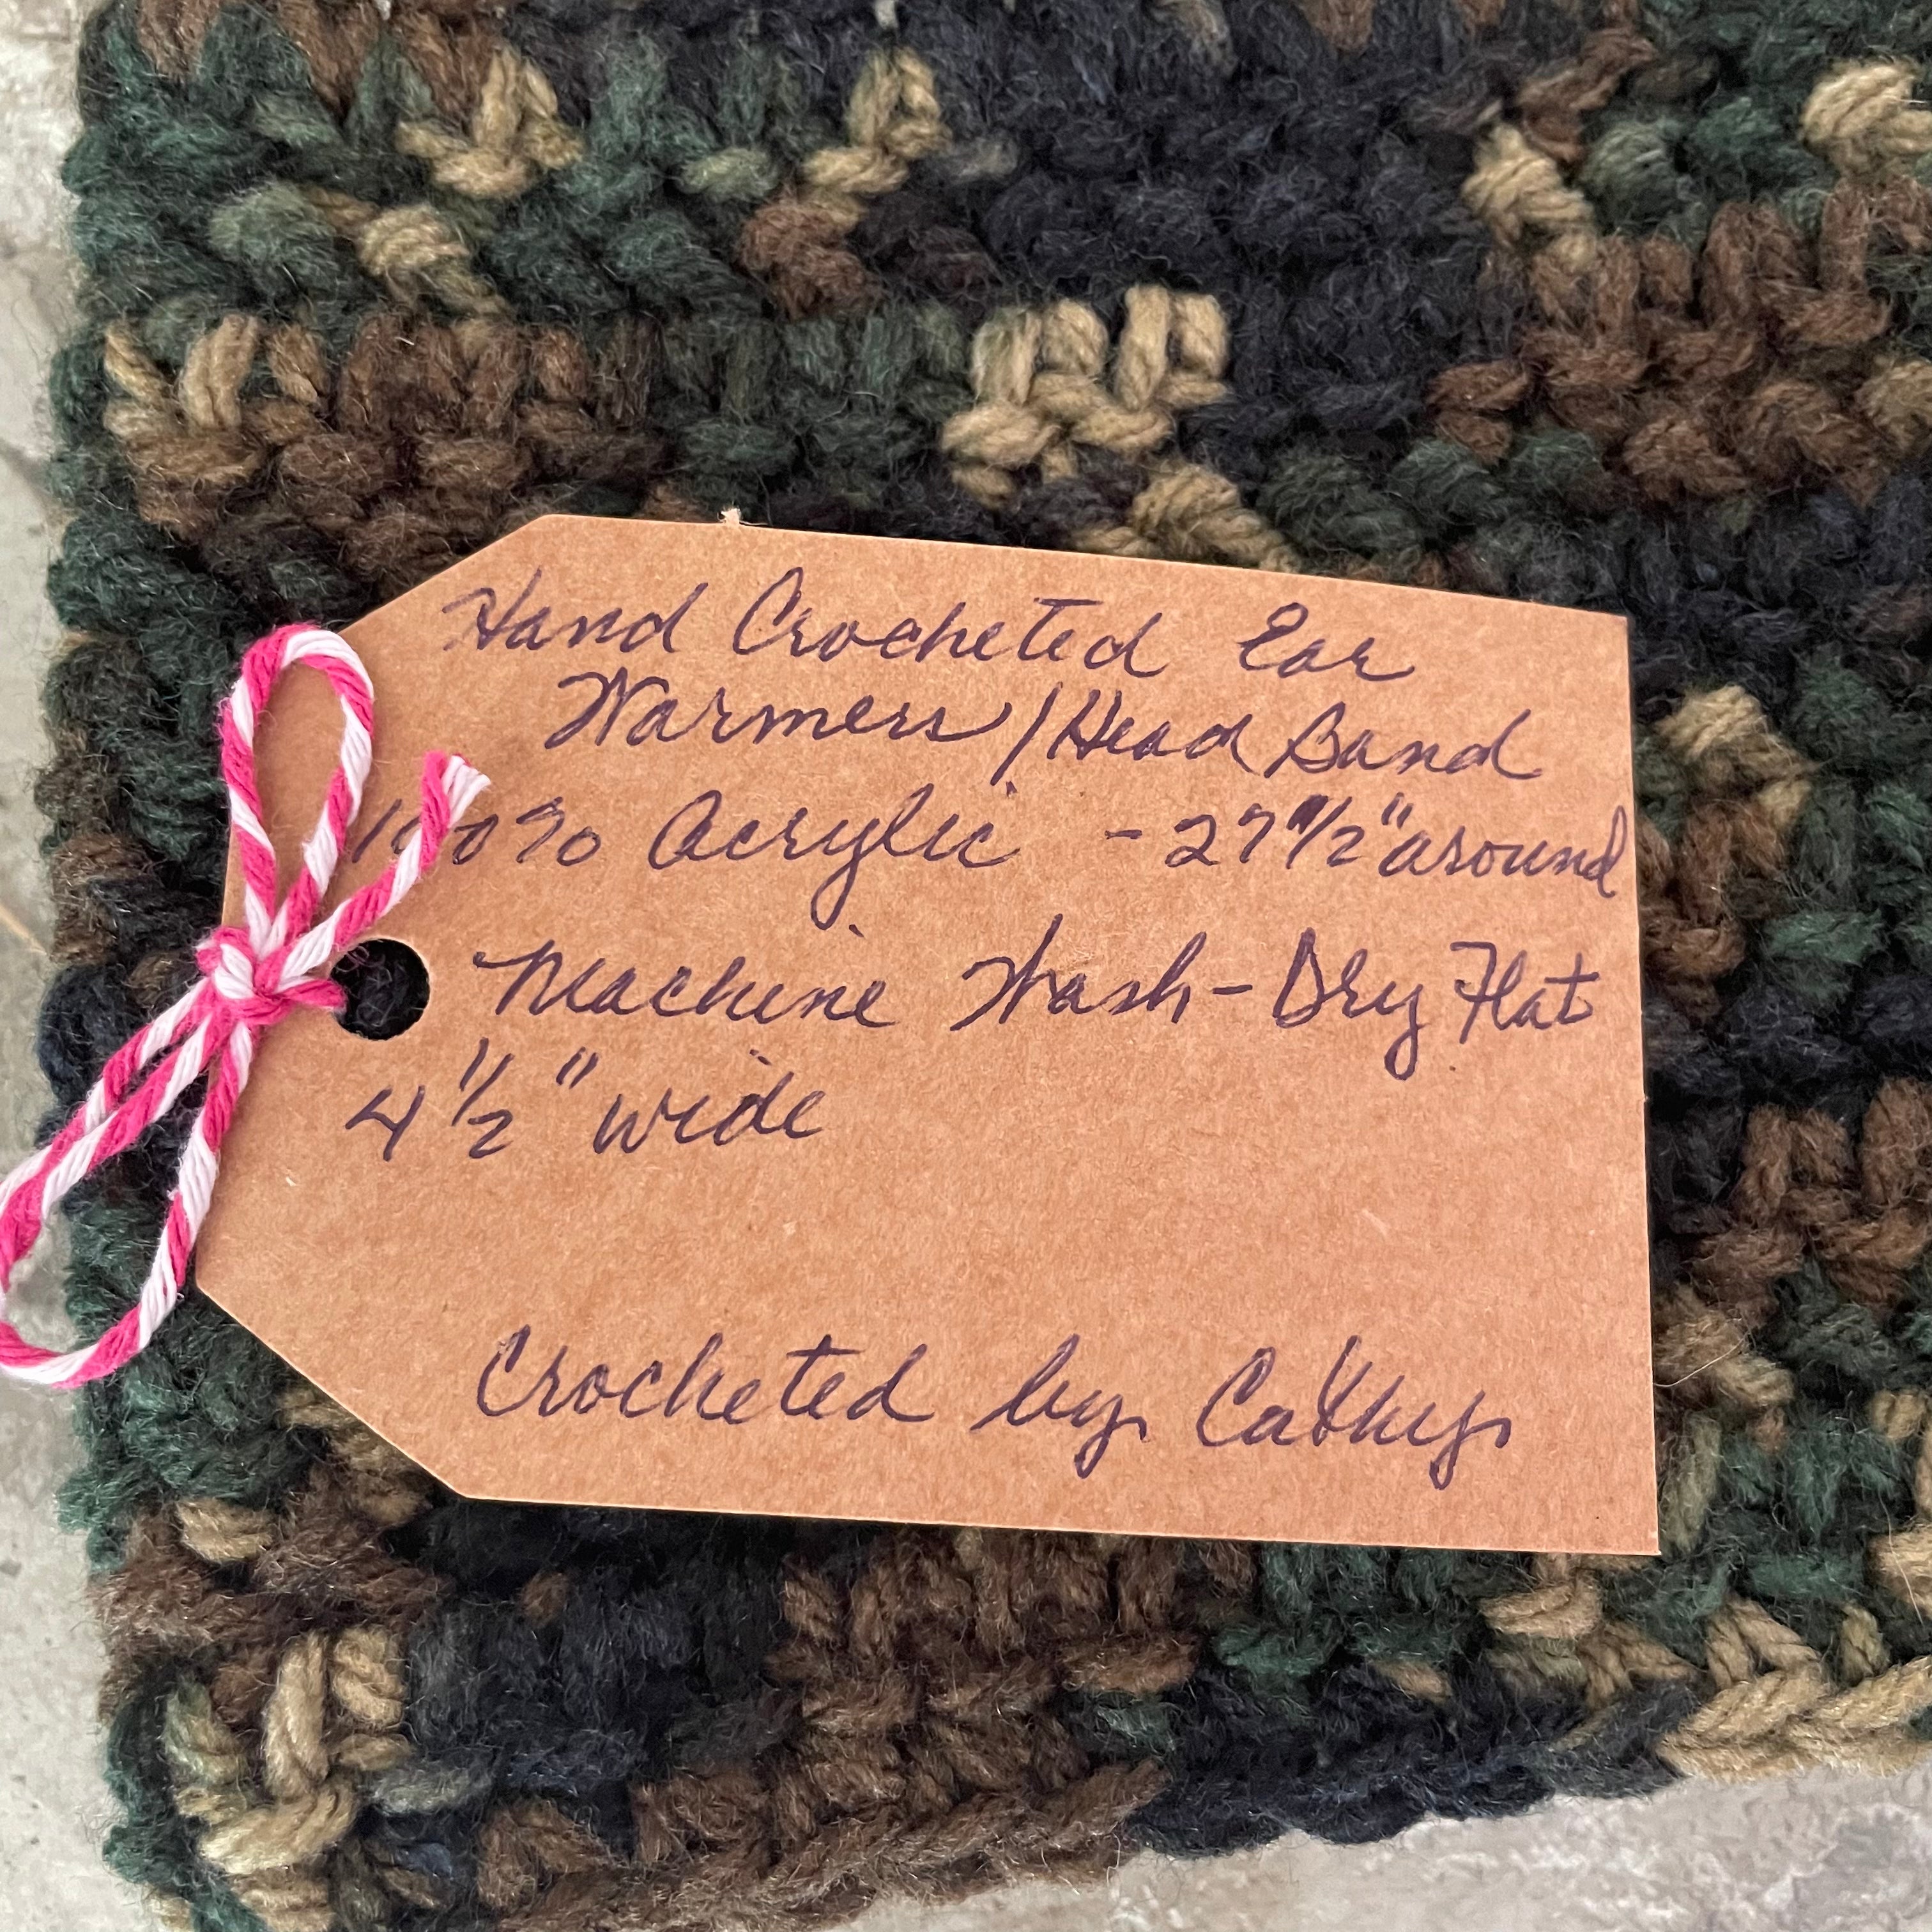 Hand Crocheted Ear
Warmers / Head Band
100% Acrylic - 27 1/2" around
Machine Wash - Dry Flat
4 1/2" wide
Crocheted by Cathy